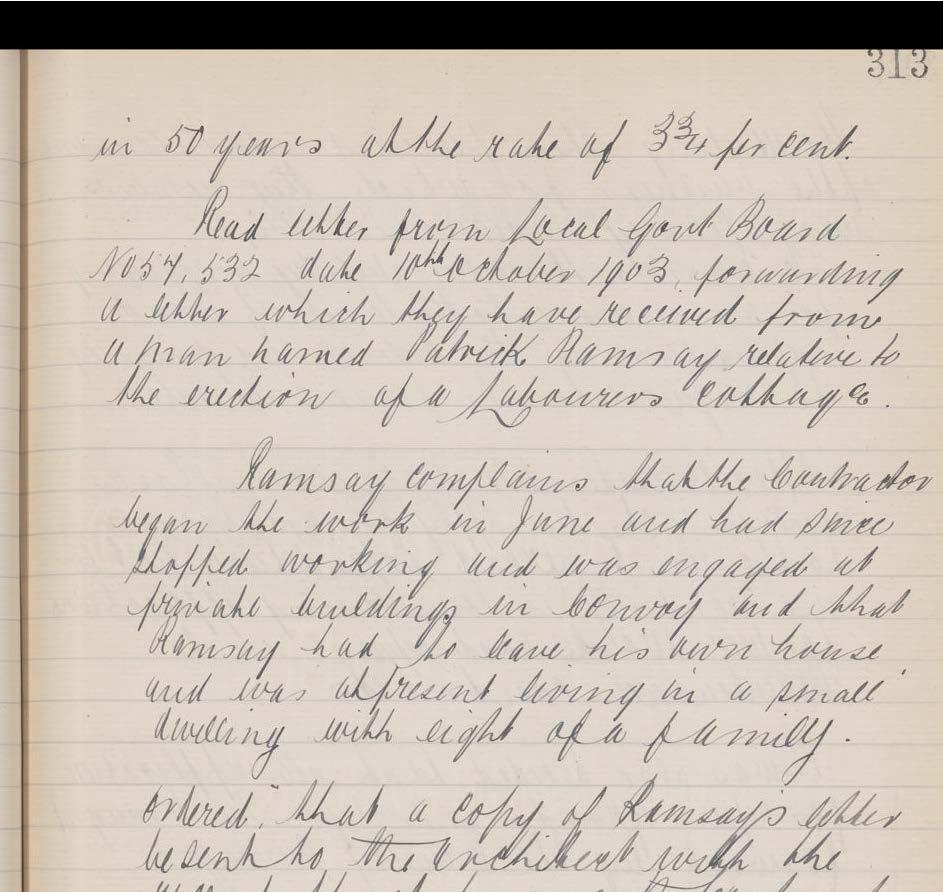 313
in 50 years at the rate of 3 3/4 per cent.
Read letter from Local Govt Board
No 57,532 date 10th October 1903, forwarding
a letter which they have received from
a man named Patrick Ramsay relative to
the erection of a Labourers Cottage.
Ramsay complains that the Contractor
began the work in June and had since
stopped working and was engaged at
private buildings in Convoy and that
Ramsay had to leave his own house
and was at present living in a small
dwelling with eight of a family.
Ordered, that a copy of Ramsay's letter
be sent to the Architect with the